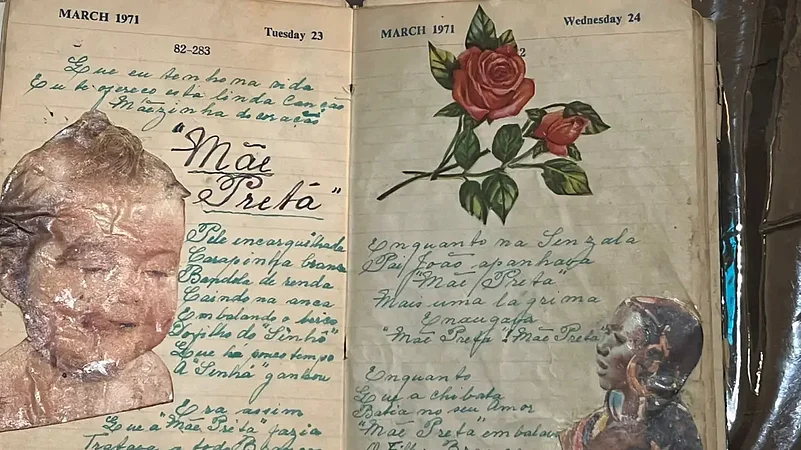 MARCH 1971
Tuesday 23
82-283
Que eu tenho na vida
Eu te ofereço esta linda canção
Mãezinha do coração
"Mãe
Preta"
Pele encarquilhada
Carapinha branca
Bandola de renda
Caindo na anca
Embalando o berço
Do filho do "Sinhô"
Que há pouco tempo
A Sinhá ganhou
Era assim
Que a "Mãe Preta" fazia
Tratava a todo
MARCH 1971
Wednesday 24
2
Enquanto na Senzala
Pai João apanhava
"Mãe Preta"
Mais uma lagrima
Enxugava
"Mãe Preta" "Mãe Preta"
Enquanto
Que a chibata
Batia no seu Amor
"Mãe Preta" embalava
O Filho